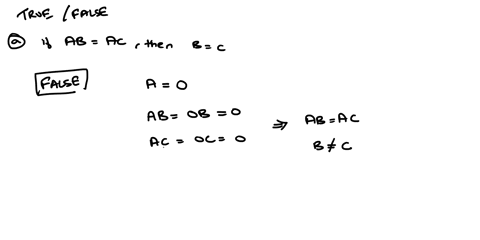 TRUE / FALSE
(a) if AB = AC, then B = C
FALSE
A = 0
AB = 0B = 0
AC = 0C = 0
⇒ AB = AC
B ≠ C